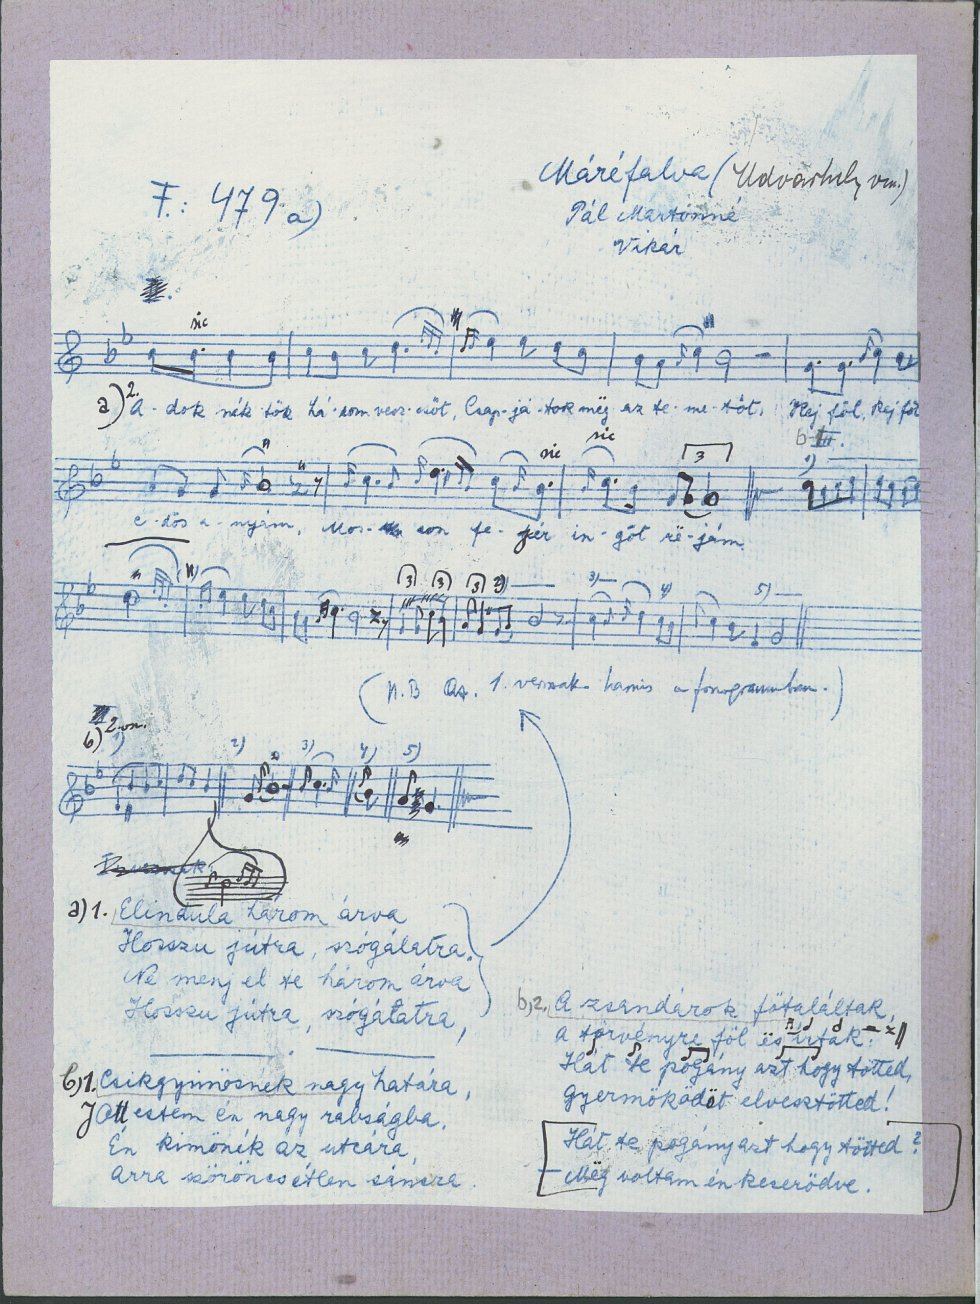 F.: 479 a)
Máréfalva (Udvarhely vm.)
Pál Mártonné
Vikár
sic
a) 2. A-dok nék tök há-rom vesz-szőt, Csap-já-tok mëg az te-me-tőt. Kej föl, kej föl
b
sic sic 3
é-dös a-nyám, Mos- son fe-jér in-göt rë-jám.
3 3 3 2) 3) 4) 5)
(N.B Az. 1. versszak hamis a fonogrammban.)
b) 2. 1)
2) 3) 4) 5)
a) 1. Elindula három árva
Hosszu jútra, szógálatra.
Ne menj el te három árva
Hosszu jútra, szógálatra,
b) 1. Csikgyimösnek nagy határa,
Jöttestem én nagy rabságba.
Én kimönék az utcára,
Arra szöröncsétlen sáncra.
b, 2. A zsandárok főtaláltak,
A törvényre föl ës irták.
Hát te pogány azt hogy tötted,
Gyermöködöt elvesztötted!
Hát te pogány azt hogy tötted?
– Még voltam én keserödve.